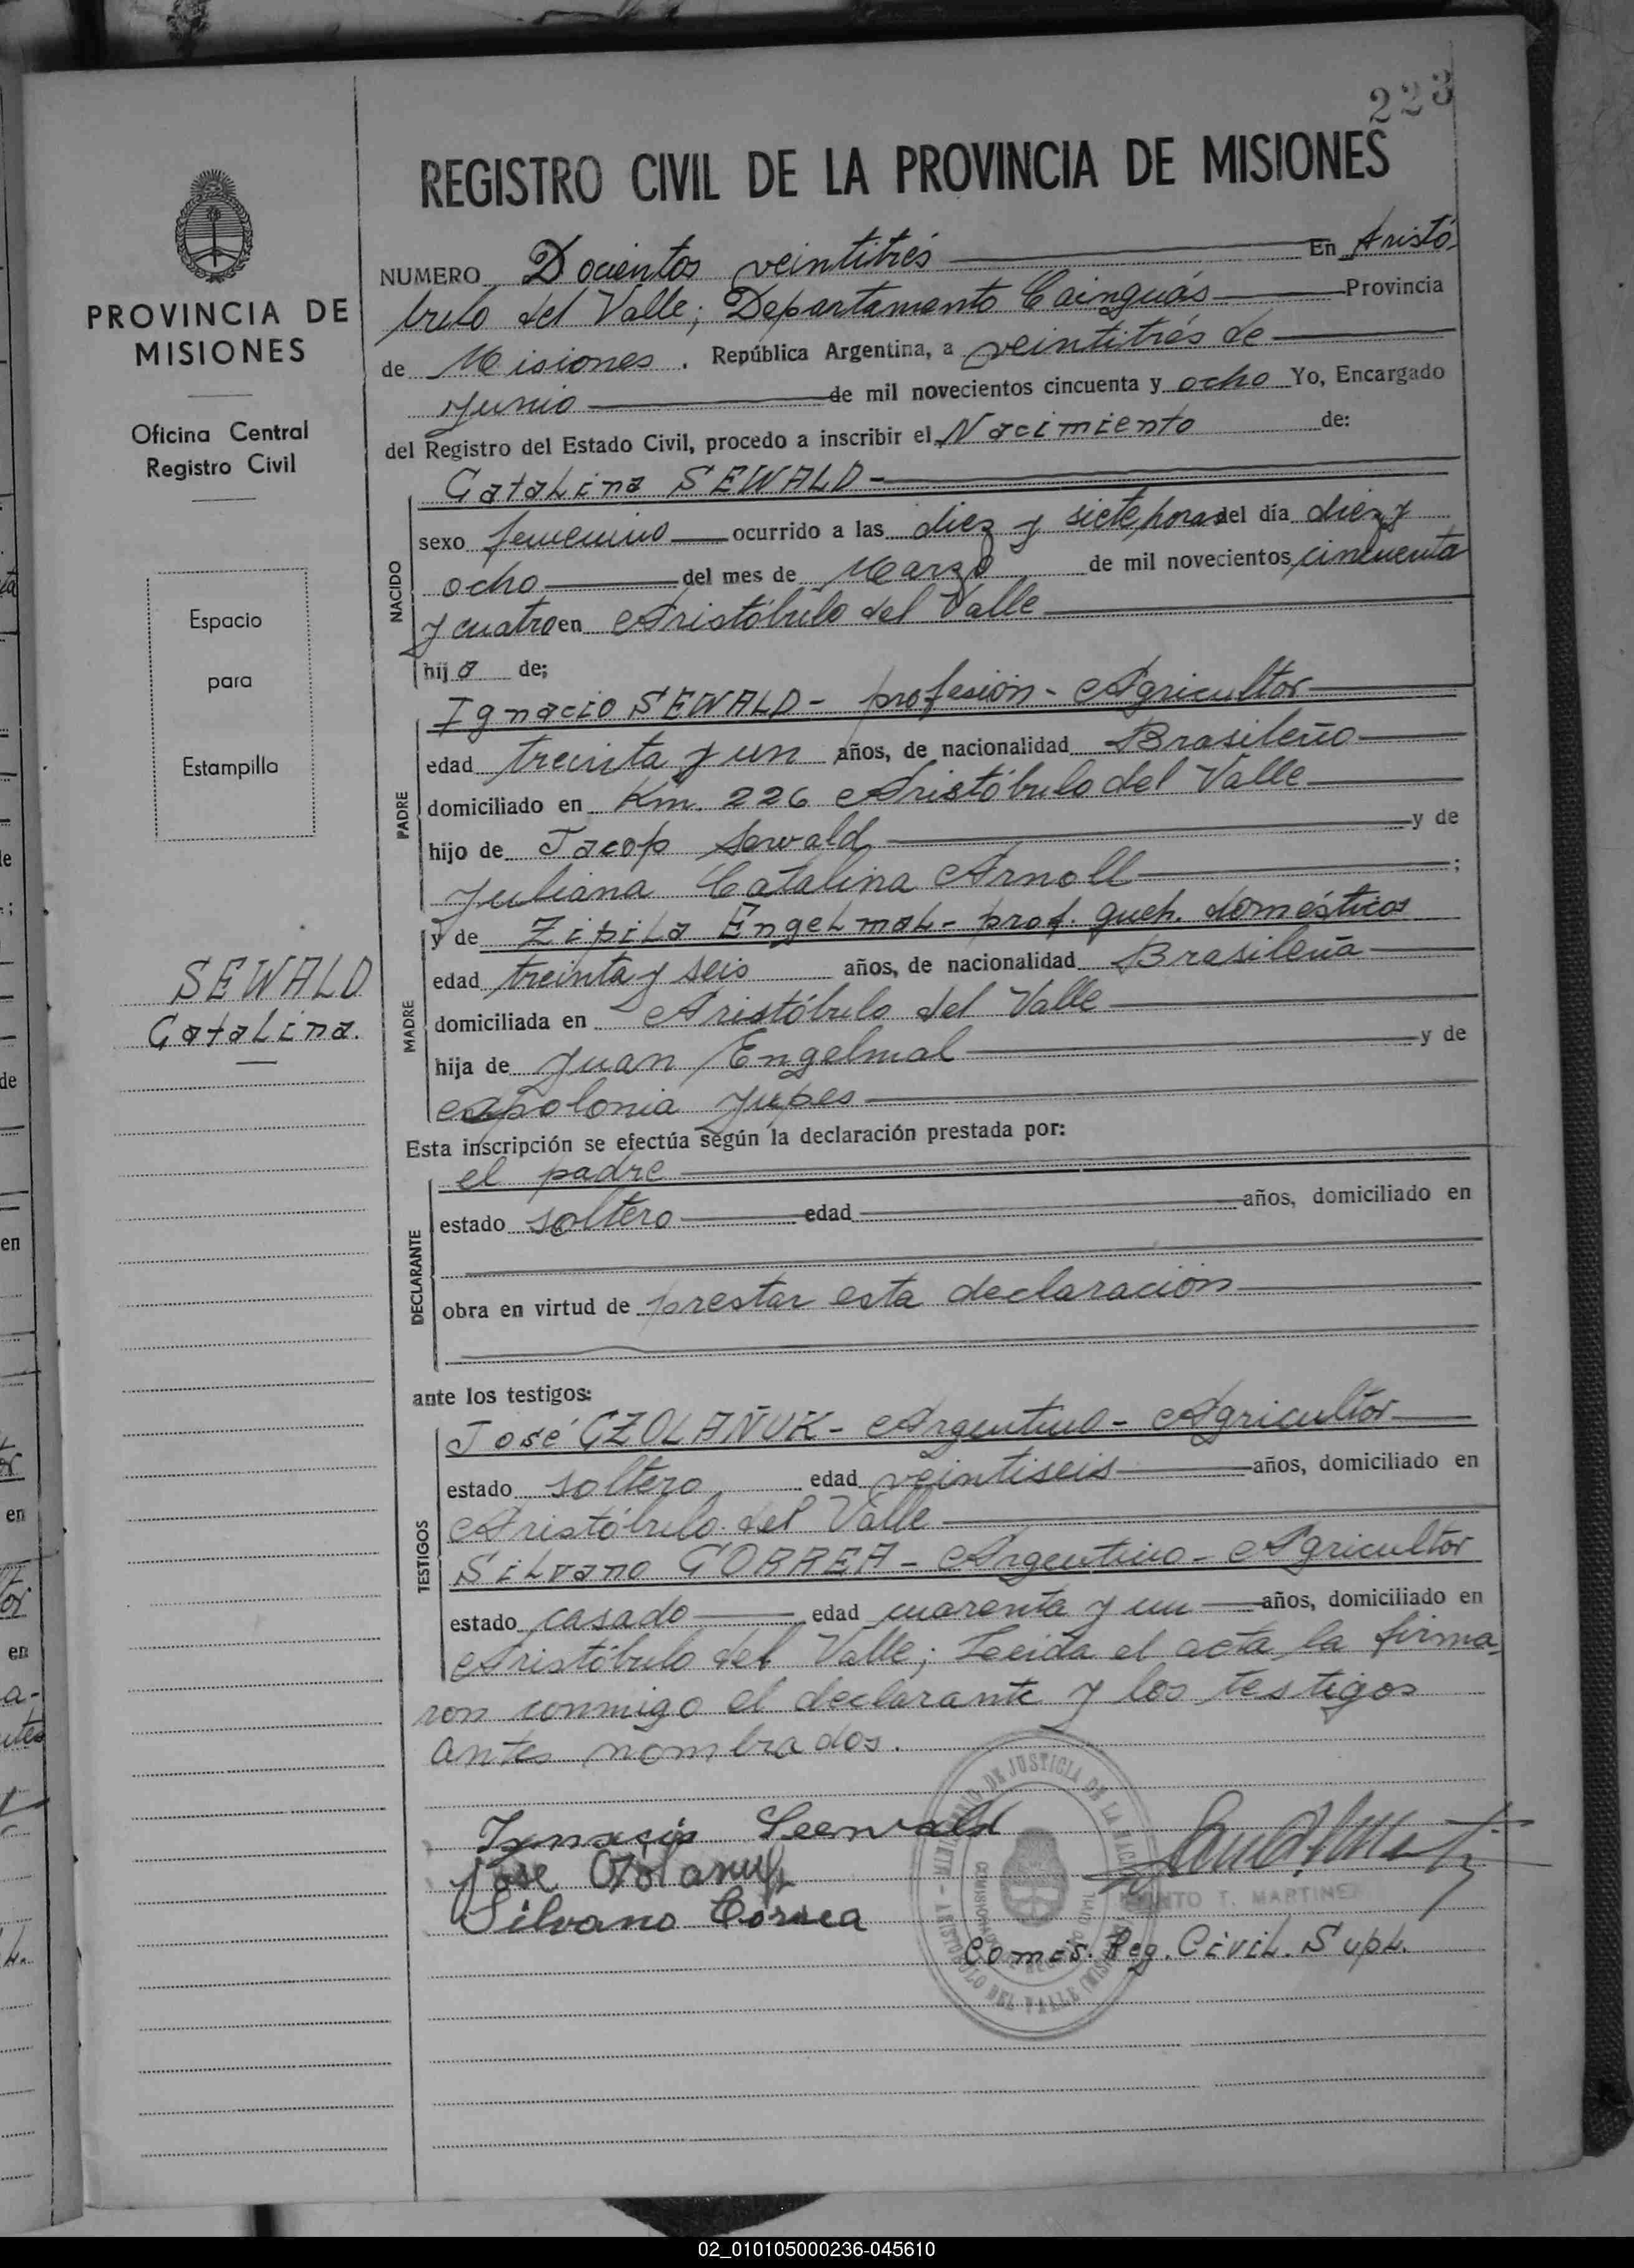 223
REGISTRO CIVIL DE LA PROVINCIA DE MISIONES
PROVINCIA DE
MISIONES
Oficina Central
Registro Civil
Espacio
para
Estampilla
SEWALD
Catalina.
NUMERO Docientos veintitrés En Aristó
bulo del Valle; Departamento Cainguás Provincia
de Misiones. República Argentina, a veintitrés de
Junio de mil novecientos cincuenta y ocho Yo, Encargado
del Registro del Estado Civil, procedo a inscribir el Nacimiento de:
Catalina SEWALD-
NACIDO
sexo femenino ocurrido a las diez y siete horas del día diez y
ocho del mes de Marzo de mil novecientos cincuenta
y cuatro en Aristóbulo del Valle
hija de;
PADRE
Ignacio SEWALD- profesión- Agricultor
edad treinta y un años, de nacionalidad Brasileño
domiciliado en Km. 226 Aristóbulo del Valle
hijo de Jacop Sewald y de
Juliana Catalina Arnoll ;
MADRE
y de Zipila Engelmal- prof. queh. domésticos
edad treinta y seis años, de nacionalidad Brasileña
domiciliada en Aristóbulo del Valle
hija de Juan Engelmal y de
Apolonia Jupes
Esta inscripción se efectúa según la declaración prestada por:
DECLARANTE
el padre
estado soltero edad años, domiciliado en
obra en virtud de prestar esta declaración
ante los testigos:
TESTIGOS
José CZOLAÑUK- Argentino- Agricultor
estado soltero edad veintiseis años, domiciliado en
Aristóbulo del Valle
Silvano CORREA- Argentino- Agricultor
estado casado edad cuarenta y un años, domiciliado en
Aristóbulo del Valle; Leeida el acta la firma
ron conmigo el declarante y los testigos
antes nombrados.
Ignacio Seewald
Jose
Silvano Correa
DE JUSTICIA DE LA
ARISTOBULO DEL VALLE
T. MARTINEZ
Comis. Reg. Civil. Supl.
02_010105000236-045610